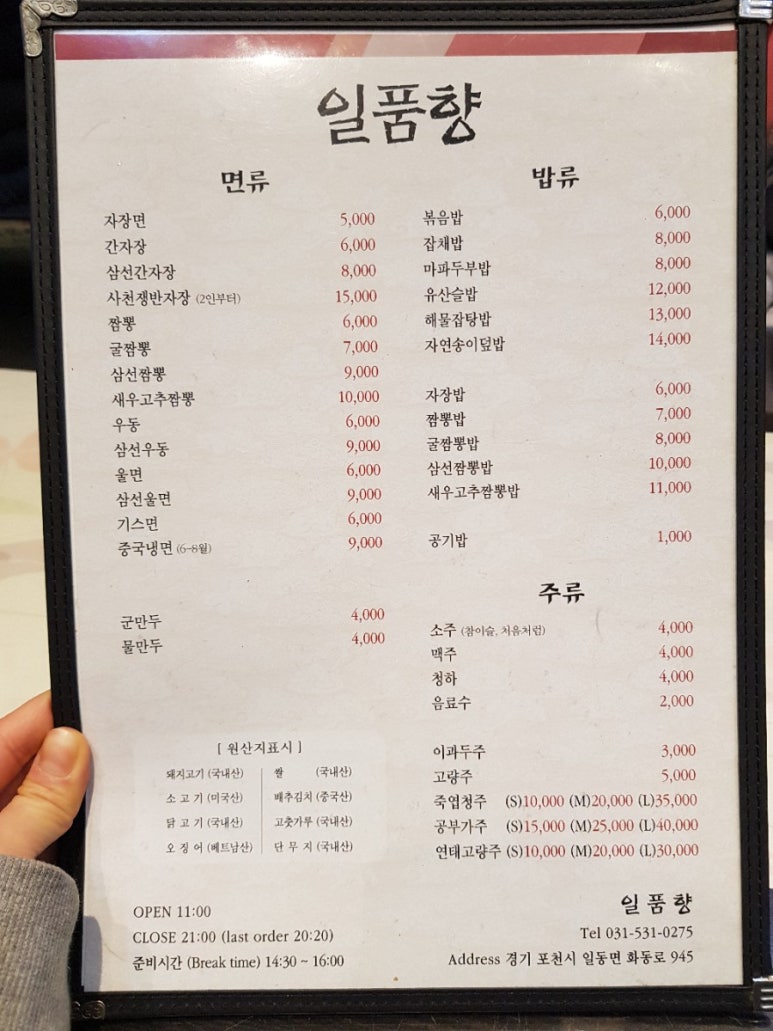 일품향
면류
자장면 5,000
간자장 6,000
삼선간자장 8,000
사천쟁반자장 (2인부터) 15,000
짬뽕 6,000
굴짬뽕 7,000
삼선짬뽕 9,000
새우고추짬뽕 10,000
우동 6,000
삼선우동 9,000
울면 6,000
삼선울면 9,000
기스면 6,000
중국냉면 (6~8월) 9,000
군만두 4,000
물만두 4,000
[ 원산지표시 ]
돼지고기 (국내산) 쌀 (국내산)
소 고 기 (미국산) 배추김치 (중국산)
닭 고 기 (국내산) 고춧가루 (국내산)
오 징 어 (베트남산) 단 무 지 (국내산)
OPEN 11:00
CLOSE 21:00 (last order 20:20)
준비시간 (Break time) 14:30 ~ 16:00
밥류
볶음밥 6,000
잡채밥 8,000
마파두부밥 8,000
유산슬밥 12,000
해물잡탕밥 13,000
자연송이덮밥 14,000
자장밥 6,000
짬뽕밥 7,000
굴짬뽕밥 8,000
삼선짬뽕밥 10,000
새우고추짬뽕밥 11,000
공기밥 1,000
주류
소주 (참이슬, 처음처럼) 4,000
맥주 4,000
청하 4,000
음료수 2,000
이과두주 3,000
고량주 5,000
죽엽청주 (S)10,000 (M)20,000 (L)35,000
공부가주 (S)15,000 (M)25,000 (L)40,000
연태고량주 (S)10,000 (M)20,000 (L)30,000
일 품 향
Tel 031-531-0275
Address 경기 포천시 일동면 화동로 945